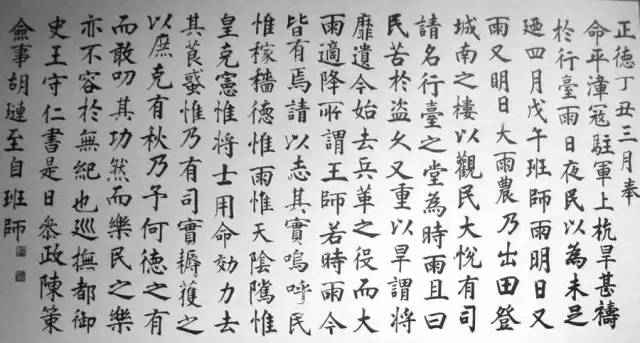 正德丁丑三月奉
命平漳寇駐軍上杭旱甚禱
於行臺雨日夜民以為未足
迺四月戊午班師雨明日又
雨又明日大雨農乃出田登
城南之樓以觀民大悅有司
請名行臺之堂為時雨且曰
民苦於盜久又重以旱謂將
靡遺今始去兵革之役而大
雨適降所謂王師若時雨今
皆有焉請以志其實嗚呼民
惟稼穡德惟雨惟天陰騭惟
皇克憲惟將士用命効力去
其莨惟乃有司實耨獲之
以庶克有秋乃予何德之有
而敢叨其功然而樂民之樂
亦不容於無紀也巡撫都御
史王守仁書是日叅政陳策
僉事胡璉至自班師